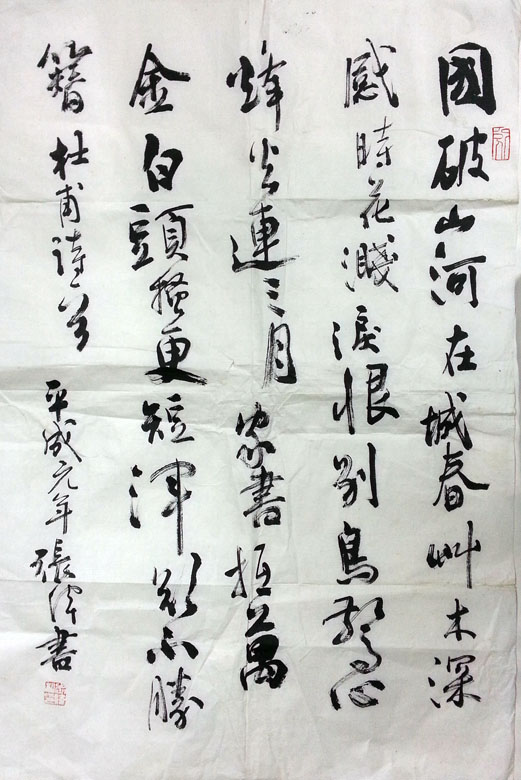 國破山河在城春艸木深
感時花濺淚恨別鳥驚心
烽火連三月家書抵萬
金白頭搔更短渾欲不勝
簪杜甫詩一首
平成元年張澤書